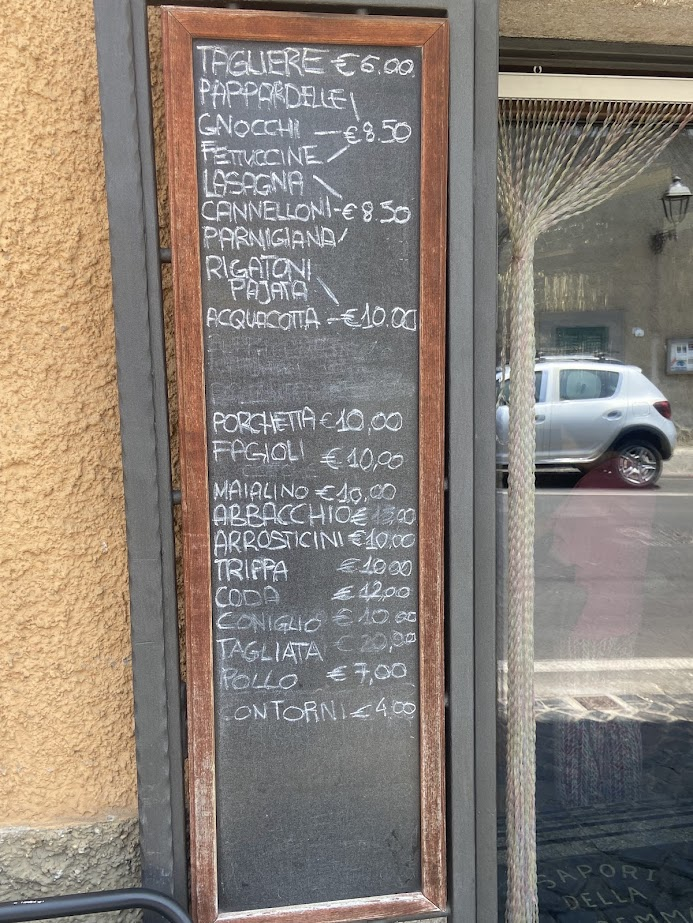 TAGLIERE €6.00
PAPPARDELLE
GNOCCHI €8.50
FETTUCCINE
LASAGNA
CANNELLONI €8.50
PARMIGIANA
RIGATONI
PAJATA
ACQUACOTTA €10.00
PORCHETTA €10,00
FAGIOLI €10,00
MAIALINO €10,00
ABBACCHIO €
ARROSTICINI €10.00
TRIPPA €10.00
CODA €12,00
CONIGLIO €10.00
TAGLIATA €20,00
POLLO €7,00
CONTORNI €4,00
SAPORI
DELLA